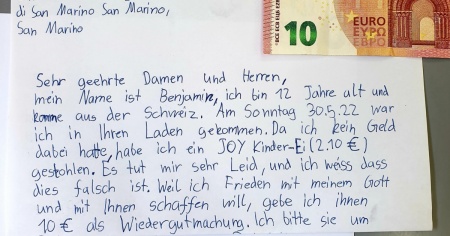 di San Marino San Marino,
San Marino
10
EURO
ΕΥΡΩ
ЕВРО
Sehr geehrte Damen und Herren,
mein Name ist Benjamin, ich bin 12 Jahre alt und
komme aus der Schweiz. Am Sonntag 30.5.22 war
ich in Ihren Laden gekommen. Da ich kein Geld
dabei hatte, habe ich ein JOY Kinder-Ei (2.10 €)
gestohlen. Es tut mir sehr Leid, und ich weiss dass
dies falsch ist. Weil ich Frieden mit meinem Gott
und mit Ihnen schaffen will, gebe ich ihnen
10 € als Wiedergutmachung. Ich bitte sie um